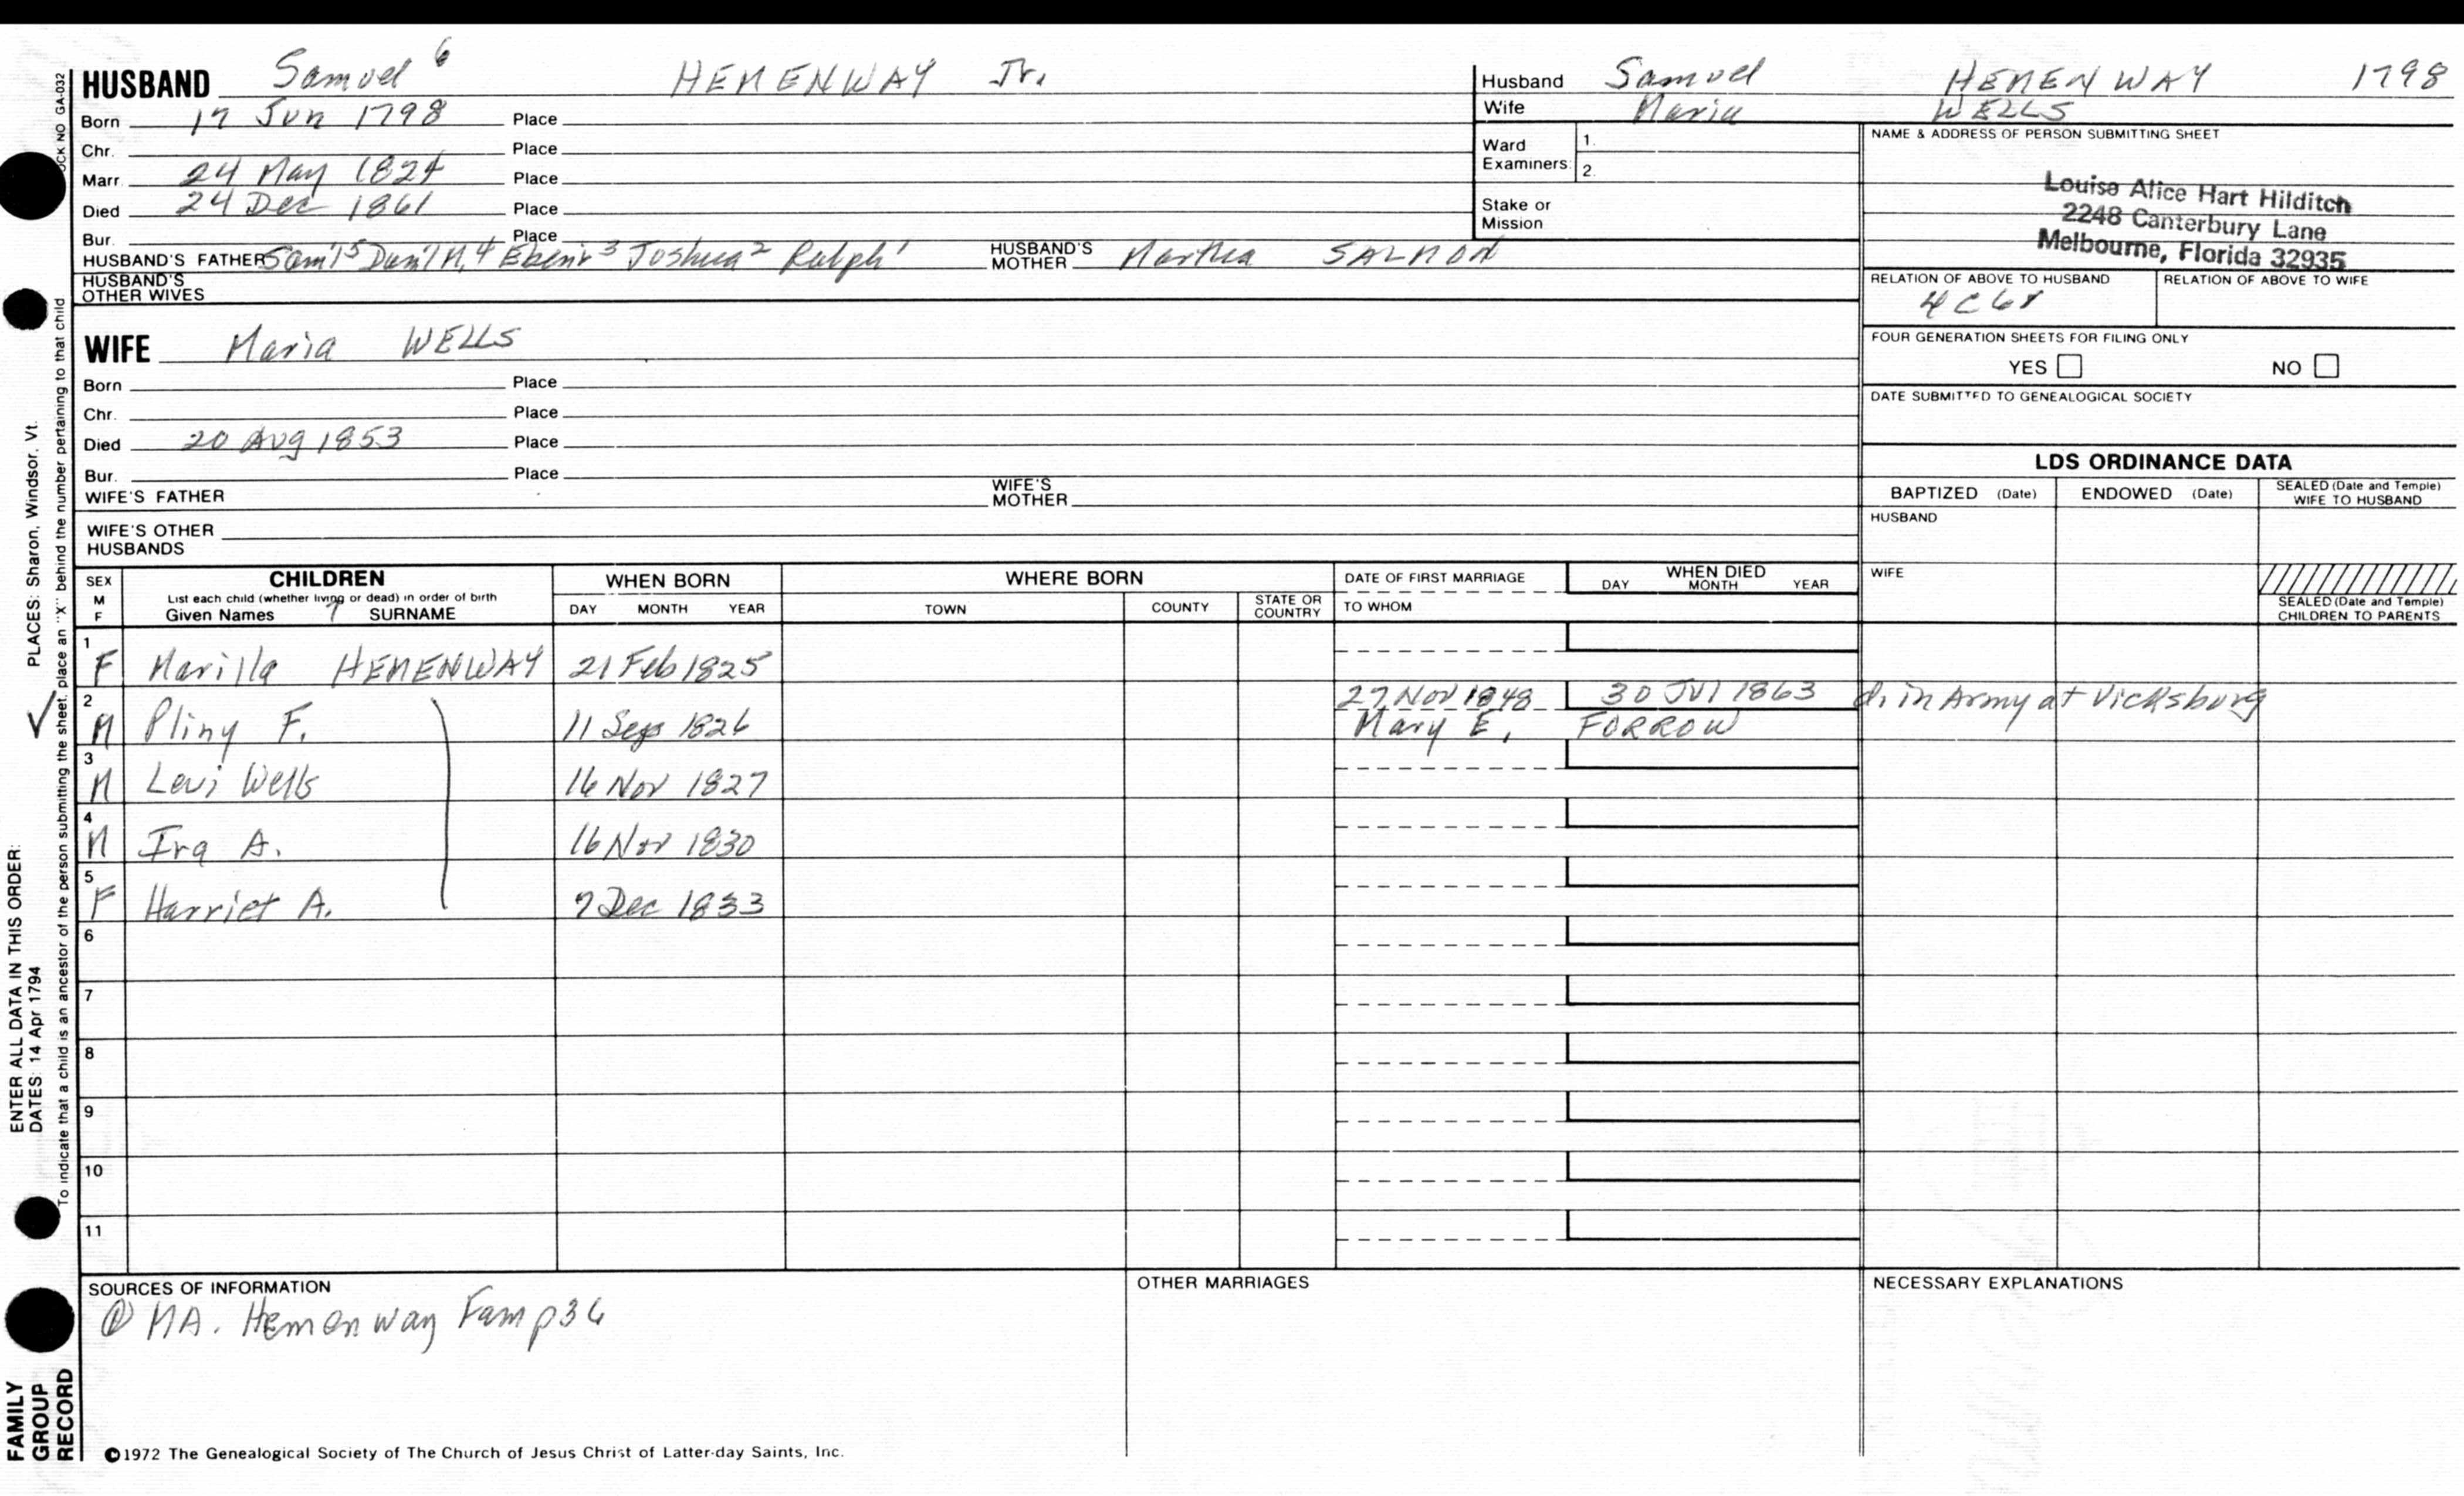 HUSBAND Samuel 6 HEMENWAY Jr.
Born 17 Jun 1798 Place
Chr. Place
Marr. 24 May 1824 Place
Died 24 Dec 1861 Place
Bur. Place
HUSBAND'S FATHER Sam'l 5 Dan'l M. 4 Ebenr 3 Joshua 2 Ralph 1 HUSBAND'S MOTHER Martha SALMON
HUSBAND'S OTHER WIVES
Husband Samuel HEMENWAY 1798
Wife Maria WELLS
Ward Examiners: 1.
2.
Stake or Mission
NAME & ADDRESS OF PERSON SUBMITTING SHEET
Louise Alice Hart Hilditch
2248 Canterbury Lane
Melbourne, Florida 32935
RELATION OF ABOVE TO HUSBAND RELATION OF ABOVE TO WIFE
4C6r
FOUR GENERATION SHEETS FOR FILING ONLY
YES NO
DATE SUBMITTED TO GENEALOGICAL SOCIETY
WIFE Maria WELLS
Born Place
Chr. Place
Died 20 Aug 1853 Place
Bur. Place
WIFE'S FATHER WIFE'S MOTHER
WIFE'S OTHER HUSBANDS
LDS ORDINANCE DATA
BAPTIZED (Date) ENDOWED (Date) SEALED (Date and Temple) WIFE TO HUSBAND
HUSBAND
WIFE
SEALED (Date and Temple) CHILDREN TO PARENTS
SEX M F CHILDREN WHEN BORN WHERE BORN DATE OF FIRST MARRIAGE WHEN DIED
List each child (whether living or dead) in order of birth
Given Names 7 SURNAME DAY MONTH YEAR TOWN COUNTY STATE OR COUNTRY TO WHOM DAY MONTH YEAR
1 F Marilla HEMENWAY 21 Feb 1825
2 M Pliny F. 11 Sep 1826 27 Nov 1848 30 Jul 1863 d. in Army at Vicksburg
Mary E. FORROW
3 M Levi Wells 16 Nov 1827
4 M Ira A. 16 Nov 1830
5 F Harriet A. 7 Dec 1833
6
7
8
9
10
11
SOURCES OF INFORMATION OTHER MARRIAGES NECESSARY EXPLANATIONS
① MA. Hemenway Fam p36
©1972 The Genealogical Society of The Church of Jesus Christ of Latter-day Saints, Inc.
FAMILY
GROUP
RECORD
ENTER ALL DATA IN THIS ORDER:
DATES: 14 Apr 1794 PLACES: Sharon, Windsor, Vt.
To indicate that a child is an ancestor of the person submitting the sheet, place an "X" behind the number pertaining to that child
NO GA-032